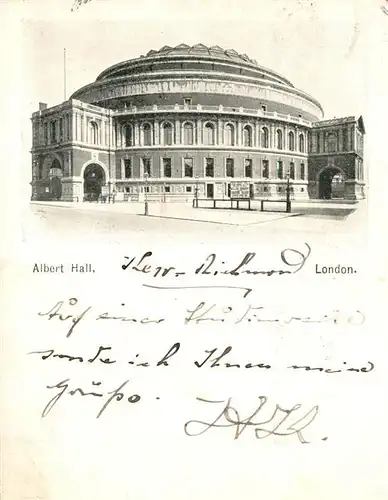 Albert Hall, London.
Kew-Richmond
Auf einer Studienreise
sende ich Ihnen meine
Grüße.